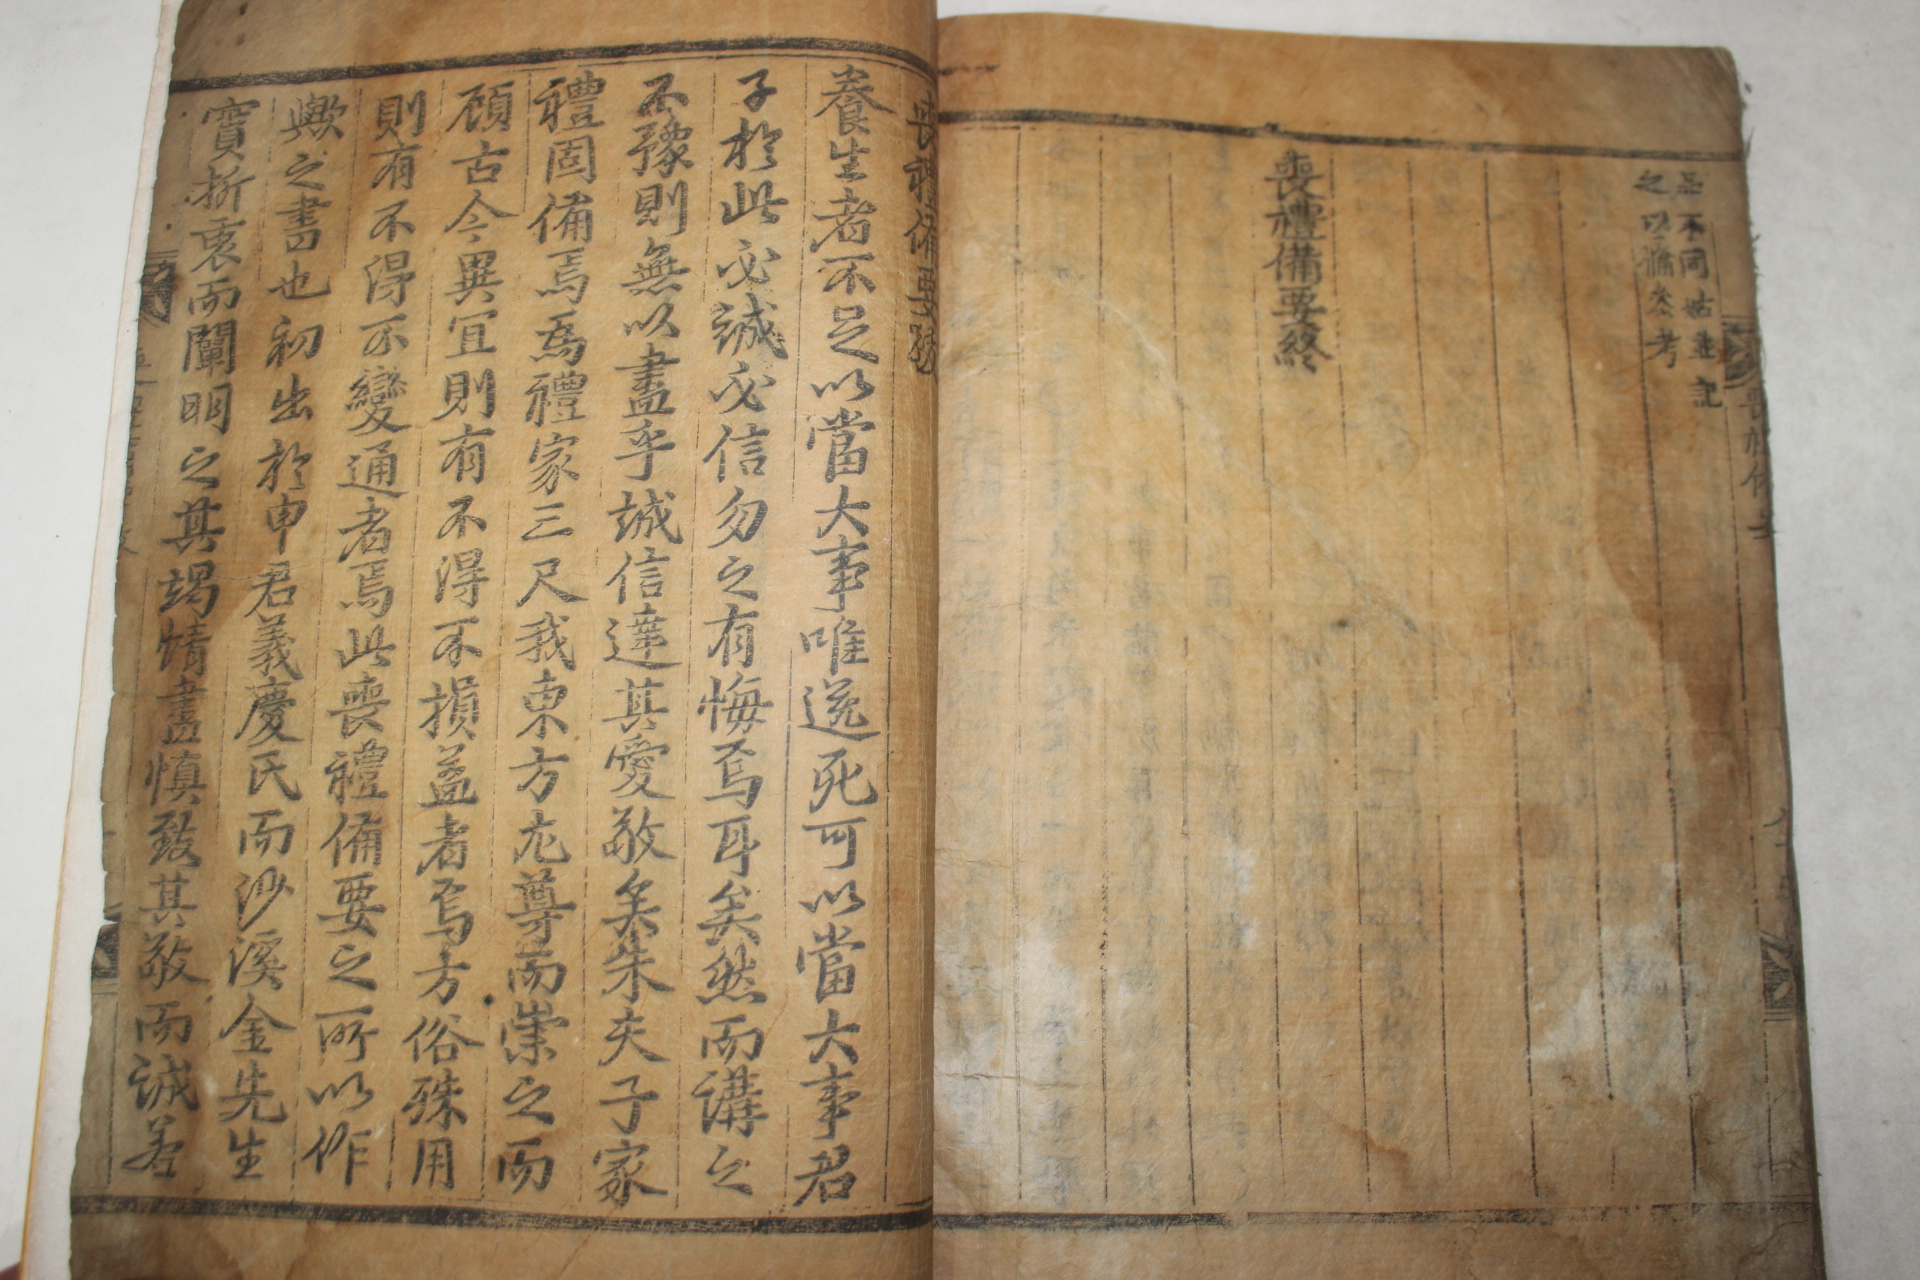 並不同姑並記
之以備參考
喪禮備要終
喪禮備要跋
養生者不足以當大事唯送死可以當大事君
子於此必誠必信勿之有悔焉耳矣然而講之
不豫則無以盡乎誠信達其愛敬矣朱夫子家
禮固備焉爲禮家三尺我東方尤尊而崇之而
顧古今異宜則有不得不損益者焉方俗殊用
則有不得不變通者焉此喪禮備要之所以作
歟之書也初出於申君義慶氏而沙溪金先生
實折衷而闡明之其竭情盡愼致其敬而誠若